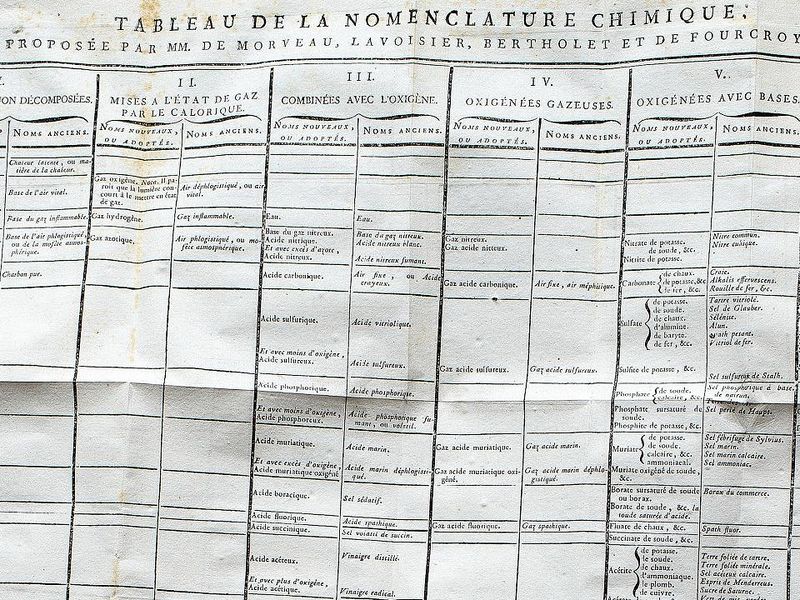 TABLEAU DE LA NOMENCLATURE CHIMIQUE,
PROPOSÉE PAR MM. DE MORVEAU, LAVOISIER, BERTHOLET ET DE FOURCROY
ON DÉCOMPOSÉES.
NOMS ANCIENS.
Chaleur latente, ou ma-
tière de la chaleur.
Base de l'air vital.
Base du gaz inflammable.
Base de l'air phlogistiqué,
ou de la mofète atmos-
phérique.
Charbon pur.
II.
MISES A L'ÉTAT DE GAZ
PAR LE CALORIQUE.
NOMS NOUVEAUX,
OU ADOPTÉS.
Gaz oxigène. Nota. Il pa-
roit que la lumière con-
court à le mettre en état
de gaz.
Gaz hydrogène.
Gaz azotique.
NOMS ANCIENS.
Air déphlogistiqué, ou air
vital.
Gaz inflammable.
Air phlogistiqué, ou mo-
fète atmosphérique.
III.
COMBINÉES AVEC L'OXIGÈNE.
NOMS NOUVEAUX,
OU ADOPTÉS.
Eau.
Base du gaz nitreux.
Acide nitrique.
Et avec excès d'azote,
Acide nitreux.
Acide carbonique.
Acide sulfurique.
Et avec moins d'oxigène,
Acide sulfureux.
Acide phosphorique.
Et avec moins d'oxigène,
Acide phosphoreux.
Acide muriatique.
Et avec excès d'oxigène,
Acide muriatique oxigéné
Acide boracique.
Acide fluorique.
Acide succinique.
Acide acéteux.
Et avec plus d'oxigène,
Acide acétique.
NOMS ANCIENS.
Eau.
Base du gaz nitreux.
Acide nitreux blanc.
Acide nitreux fumant.
Air fixe, ou Acide
crayeux.
Acide vitriolique.
Acide sulfureux.
Acide phosphorique.
Acide phosphorique fu-
mant, ou volatil.
Acide marin.
Acide marin déphlogisti-
qué.
Sel sédatif.
Acide spathique.
Sel volatil de succin.
Vinaigre distillé.
Vinaigre radical.
IV.
OXIGÉNÉES GAZEUSES.
NOMS NOUVEAUX,
OU ADOPTÉS.
Gaz nitreux.
Gaz acide nitteux.
Gaz acide carbonique.
Gaz acide sulfureux.
Gaz acide muriatique.
Gaz acide muriatique oxi-
géné.
Gaz acide fluorique.
NOMS ANCIENS.
Air fixe, air méphitique.
Gaz acide sulfureux.
Gaz acide marin.
Gaz acide marin déphlo-
gistiqué.
Gaz spathique.
V.
OXIGÉNÉES AVEC BASES.
NOMS NOUVEAUX,
OU ADOPTÉS.
Nitrate de potasse.
de soude, &c.
Nitrite de potasse.
Carbonate
de chaux.
de potasse, &c
de fer, &c.
Sulfate
de potasse.
de soude.
de chaux.
d'alumine.
de baryte.
de fer, &c.
Sulfite de potasse, &c.
Phosphate
de soude.
calcaire, &c.
Phosphate sursaturé de
soude.
Phosphite de potasse, &c.
Muriate
de potasse.
de soude.
calcaire, &c.
ammoniacal.
Muriate oxigéné de soude,
&c.
Borate sursaturé de soude
ou borax.
Borate de soude, &c. la
soude saturée d'acide.
Fluate de chaux, &c.
Succinate de soude, &c.
Acétite
de potasse.
de soude.
de chaux.
d'ammoniaque.
de plomb.
de cuivre.
NOMS ANCIENS.
Nitre commun.
Nitre cubique.
Craie.
Alkalis effervescens.
Rouille de fer, &c.
Tartre vitriolé.
Sel de Glauber.
Sélénite.
Alun.
Spath pesant.
Vitriol de fer.
Sel sulfureux de Stalh.
Sel phosphorique à base
de natrum.
Sel perlé de Haupt.
Sel fébrifuge de Sylvius.
Sel marin.
Sel marin calcaire.
Sel ammoniac.
Borax du commerce.
Spath fluor.
Terre foliée de tartre.
Terre foliée minérale.
Sel acéteux calcaire.
Esprit de Mendererus.
Sucre de Saturne.